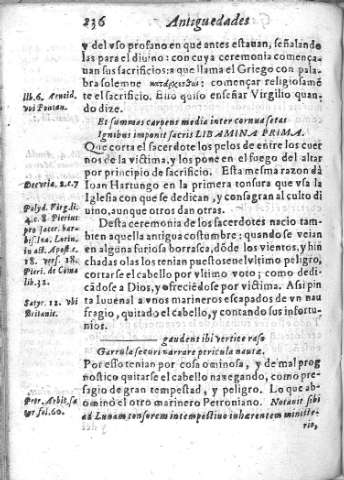 236 Antiguedades
y del vso profano en que antes estauan, señalando
las para el diuino: con cuya ceremonia comença-
uan sus sacrificios: a que llama el Griego con pala-
bra solemne començar religiosamẽ
lib. 6. Aeneid.
vbi Pontan.
te el sacrificio. Esto quiso enseñar Virgilio quan-
do dize.
Et summas carpens media inter cornua setas
Ignibus imponit sacris LIBAMINA PRIMA.
Que corta el sacerdote los pelos de entre los cuer
nos de la victima, y los pone en el fuego del altar
por principio de sacrificio. Esta mesma razon dà
Decuria. 2. c. 7
Ioan Hartungo en la primera tonsura que vsa la
Iglesia con que se dedican, y consagran al culto di
uino, aunque otros dan otras.
Polyd. Virg. li.
4. c. 8 Pierius
pro sacer. bar-
bis, Ioa, Lorin,
in act. Apost. c.
18. vers. 18.
Pieri. de Coma
lib. 32.
Desta ceremonia de los sacerdotes nacio tam-
bien aquella antigua costumbre; quando se veian
en alguna furiosa borrasca, dõde los vientos, y hin
chadas olas los tenian puestos en el vltimo peligro,
cortarse el cabello por vltimo voto; como dedi-
cãdose a Dios, y ofreciẽdose por victima. Asi pin
Satyr. 12. vbi
Britanic.
ta Iuuenal a vnos marineros escapados de vn nau
fragio, quitado el cabello, y contando sus infortu-
nios.
gaudent ibi vertice raso
Garrula securi narrare pericula nautæ.
Por esso tenian por cosa ominosa, y de mal prog
nostico quitarse el cabello nauegando, como pre-
sagio de gran tempestad, y peligro. Lo que abo-
Petr. Arbit. sa
tyr fol. 60.
minò el otro marinero Petroniano. Notauit sibi
ad Lunam tonsorem intempestiuo inhærentem ministe-
rio,